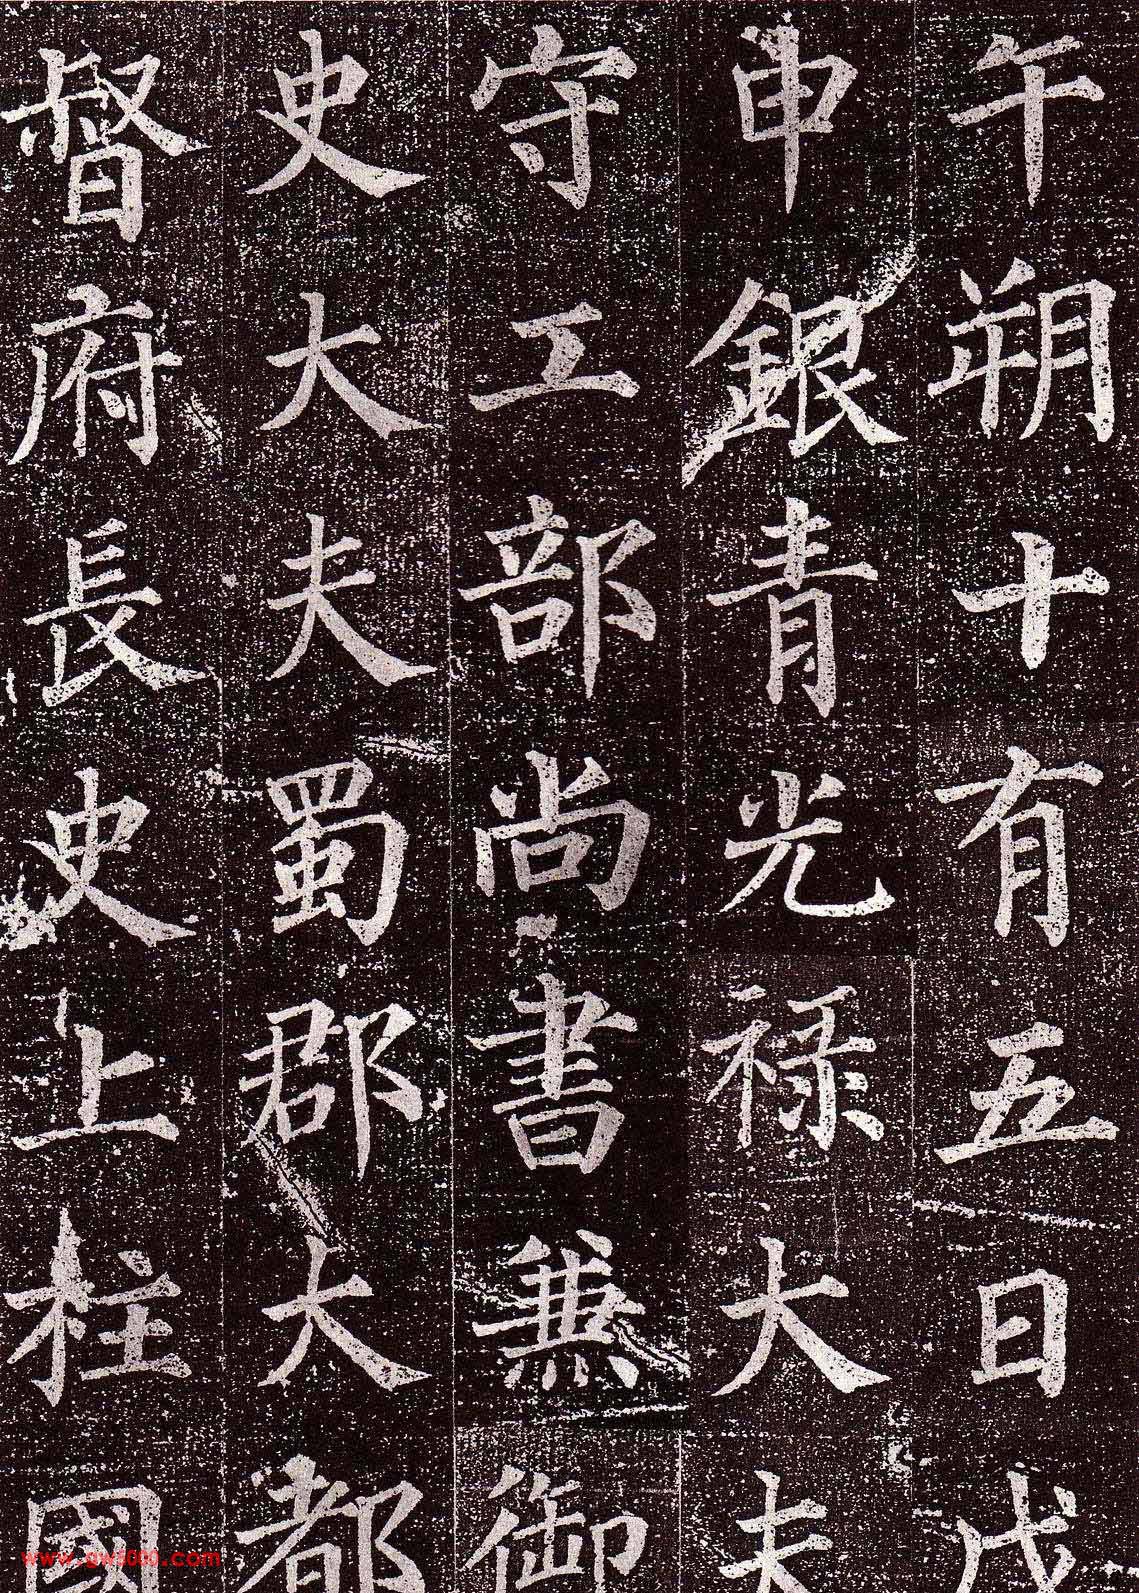 午朔十有五日戊
申銀青光祿大夫
守工部尚書兼御
史大夫蜀郡大都
督府長史上柱國
www.gw5000.com